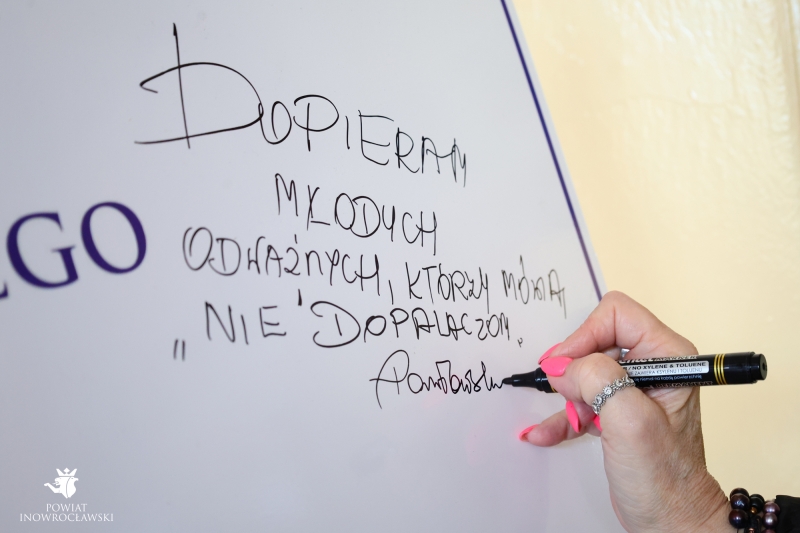 DOPIERAM
MŁODYCH
ODWAŻNYCH, KTÓRZY MÓWIĄ
„NIE" DOPALACZOM„
EGO
NO XYLENE & TOLUENE
POWIAT
INOWROCŁAWSKI